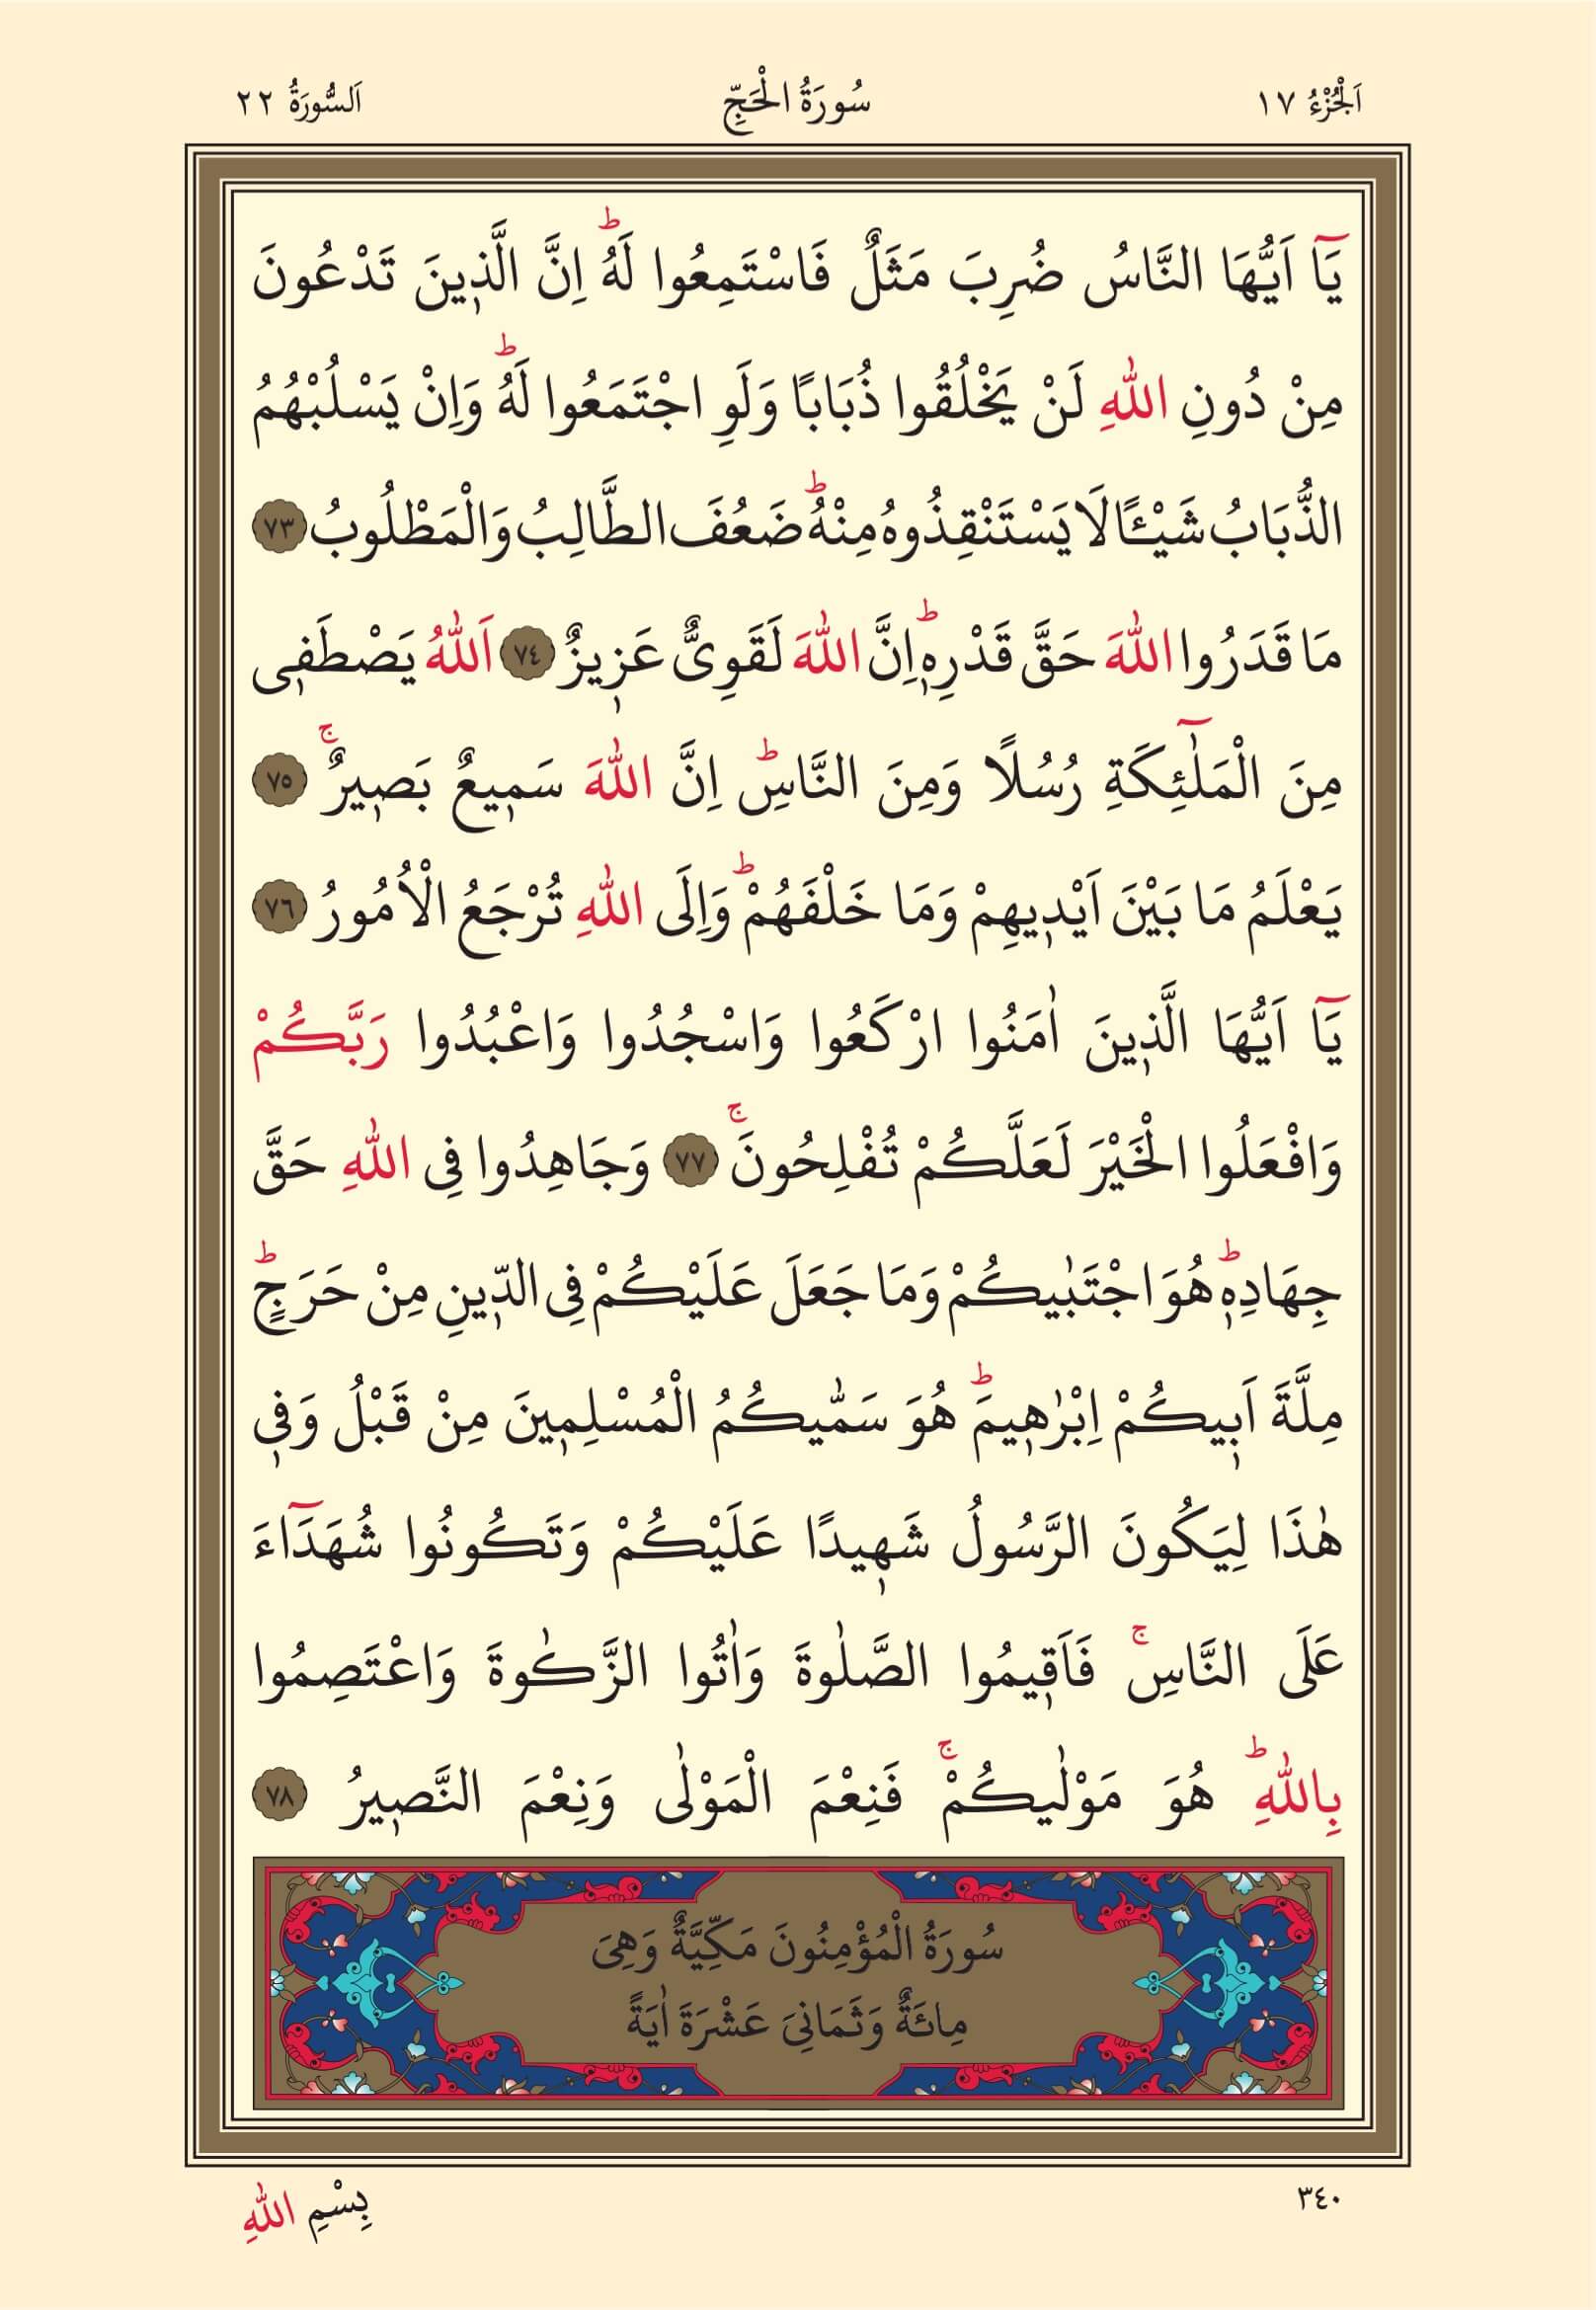 اَلْجُزْءُ ١٧ سُورَةُ الْحَجِّ اَلسُّورَةُ ٢٢
يَٓا اَيُّهَا النَّاسُ ضُرِبَ مَثَلٌ فَاسْتَمِعُوا لَهُۜ اِنَّ الَّذ۪ينَ تَدْعُونَ
مِنْ دُونِ اللّٰهِ لَنْ يَخْلُقُوا ذُبَابًا وَلَوِ اجْتَمَعُوا لَهُۜ وَاِنْ يَسْلُبْهُمُ
الذُّبَابُ شَيْـًٔا لَا يَسْتَنْقِذُوهُ مِنْهُۜ ضَعُفَ الطَّالِبُ وَالْمَطْلُوبُ ﴿٧٣﴾
مَا قَدَرُوا اللّٰهَ حَقَّ قَدْرِه۪ۜ اِنَّ اللّٰهَ لَقَوِىٌّ عَز۪يزٌ ﴿٧٤﴾ اَللّٰهُ يَصْطَف۪ى
مِنَ الْمَلٰٓئِكَةِ رُسُلًا وَمِنَ النَّاسِۜ اِنَّ اللّٰهَ سَم۪يعٌ بَص۪يرٌۚ ﴿٧٥﴾
يَعْلَمُ مَا بَيْنَ اَيْد۪يهِمْ وَمَا خَلْفَهُمْۜ وَاِلَى اللّٰهِ تُرْجَعُ الْاُمُورُ ﴿٧٦﴾
يَٓا اَيُّهَا الَّذ۪ينَ اٰمَنُوا ارْكَعُوا وَاسْجُدُوا وَاعْبُدُوا رَبَّكُمْ
وَافْعَلُوا الْخَيْرَ لَعَلَّكُمْ تُفْلِحُونَۚ ﴿٧٧﴾ وَجَاهِدُوا فِى اللّٰهِ حَقَّ
جِهَادِه۪ۜ هُوَ اجْتَبٰيكُمْ وَمَا جَعَلَ عَلَيْكُمْ فِى الدّ۪ينِ مِنْ حَرَجٍۜ
مِلَّةَ اَب۪يكُمْ اِبْرٰه۪يمَۜ هُوَ سَمّٰيكُمُ الْمُسْلِم۪ينَ مِنْ قَبْلُ وَف۪ى
هٰذَا لِيَكُونَ الرَّسُولُ شَه۪يدًا عَلَيْكُمْ وَتَكُونُوا شُهَدَٓاءَ
عَلَى النَّاسِۚ فَاَق۪يمُوا الصَّلٰوةَ وَاٰتُوا الزَّكٰوةَ وَاعْتَصِمُوا
بِاللّٰهِۜ هُوَ مَوْلٰيكُمْۚ فَنِعْمَ الْمَوْلٰى وَنِعْمَ النَّص۪يرُ ﴿٧٨﴾
سُورَةُ الْمُؤْمِنُونَ مَكِّيَّةٌ وَهِىَ
مِائَةٌ وَثَمَانِىَ عَشْرَةَ اٰيَةً
٣٤٠ بِسْمِ اللّٰهِ